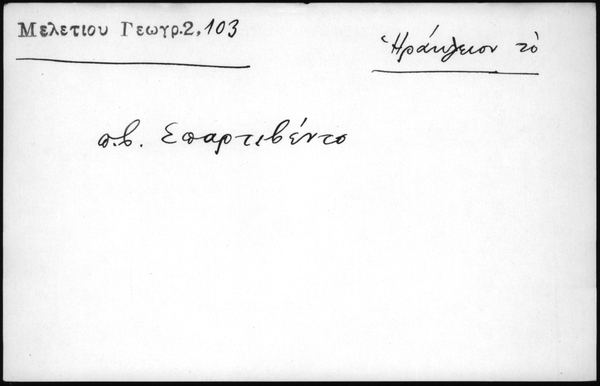 Μελετίου Γεωγρ.2, 103
Ἡράκλειον τὸ
π.β. Σπαρτιβέντο